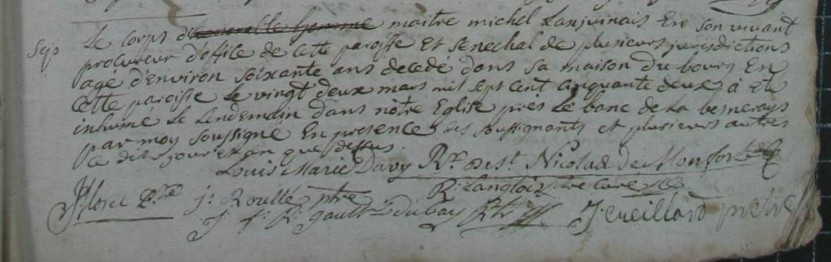 Sep.
Le corps d'honorable homme maitre michel Lanjuinais En son vivant
procureur d'office de Cette paroisse Et senechal de plusieurs jurisdictions
agé d'environ soixante ans decedé dans sa maison du bourg En
Cette paroisse le vingt deux mars mil sept cent cinquante deux, a Eté
inhumé le Lendemain dans notre Eglise pres le banc de la besneraye
par moy soussigné En presence des soussignants et plusieurs autres
Ce dit jour et an que dessus.
Louis Marie Davy Rr de St Nicolas de Monfort
R. Langlois ptre curé
J. Roullé ptre
gault Dubay
J. eveillard pretre